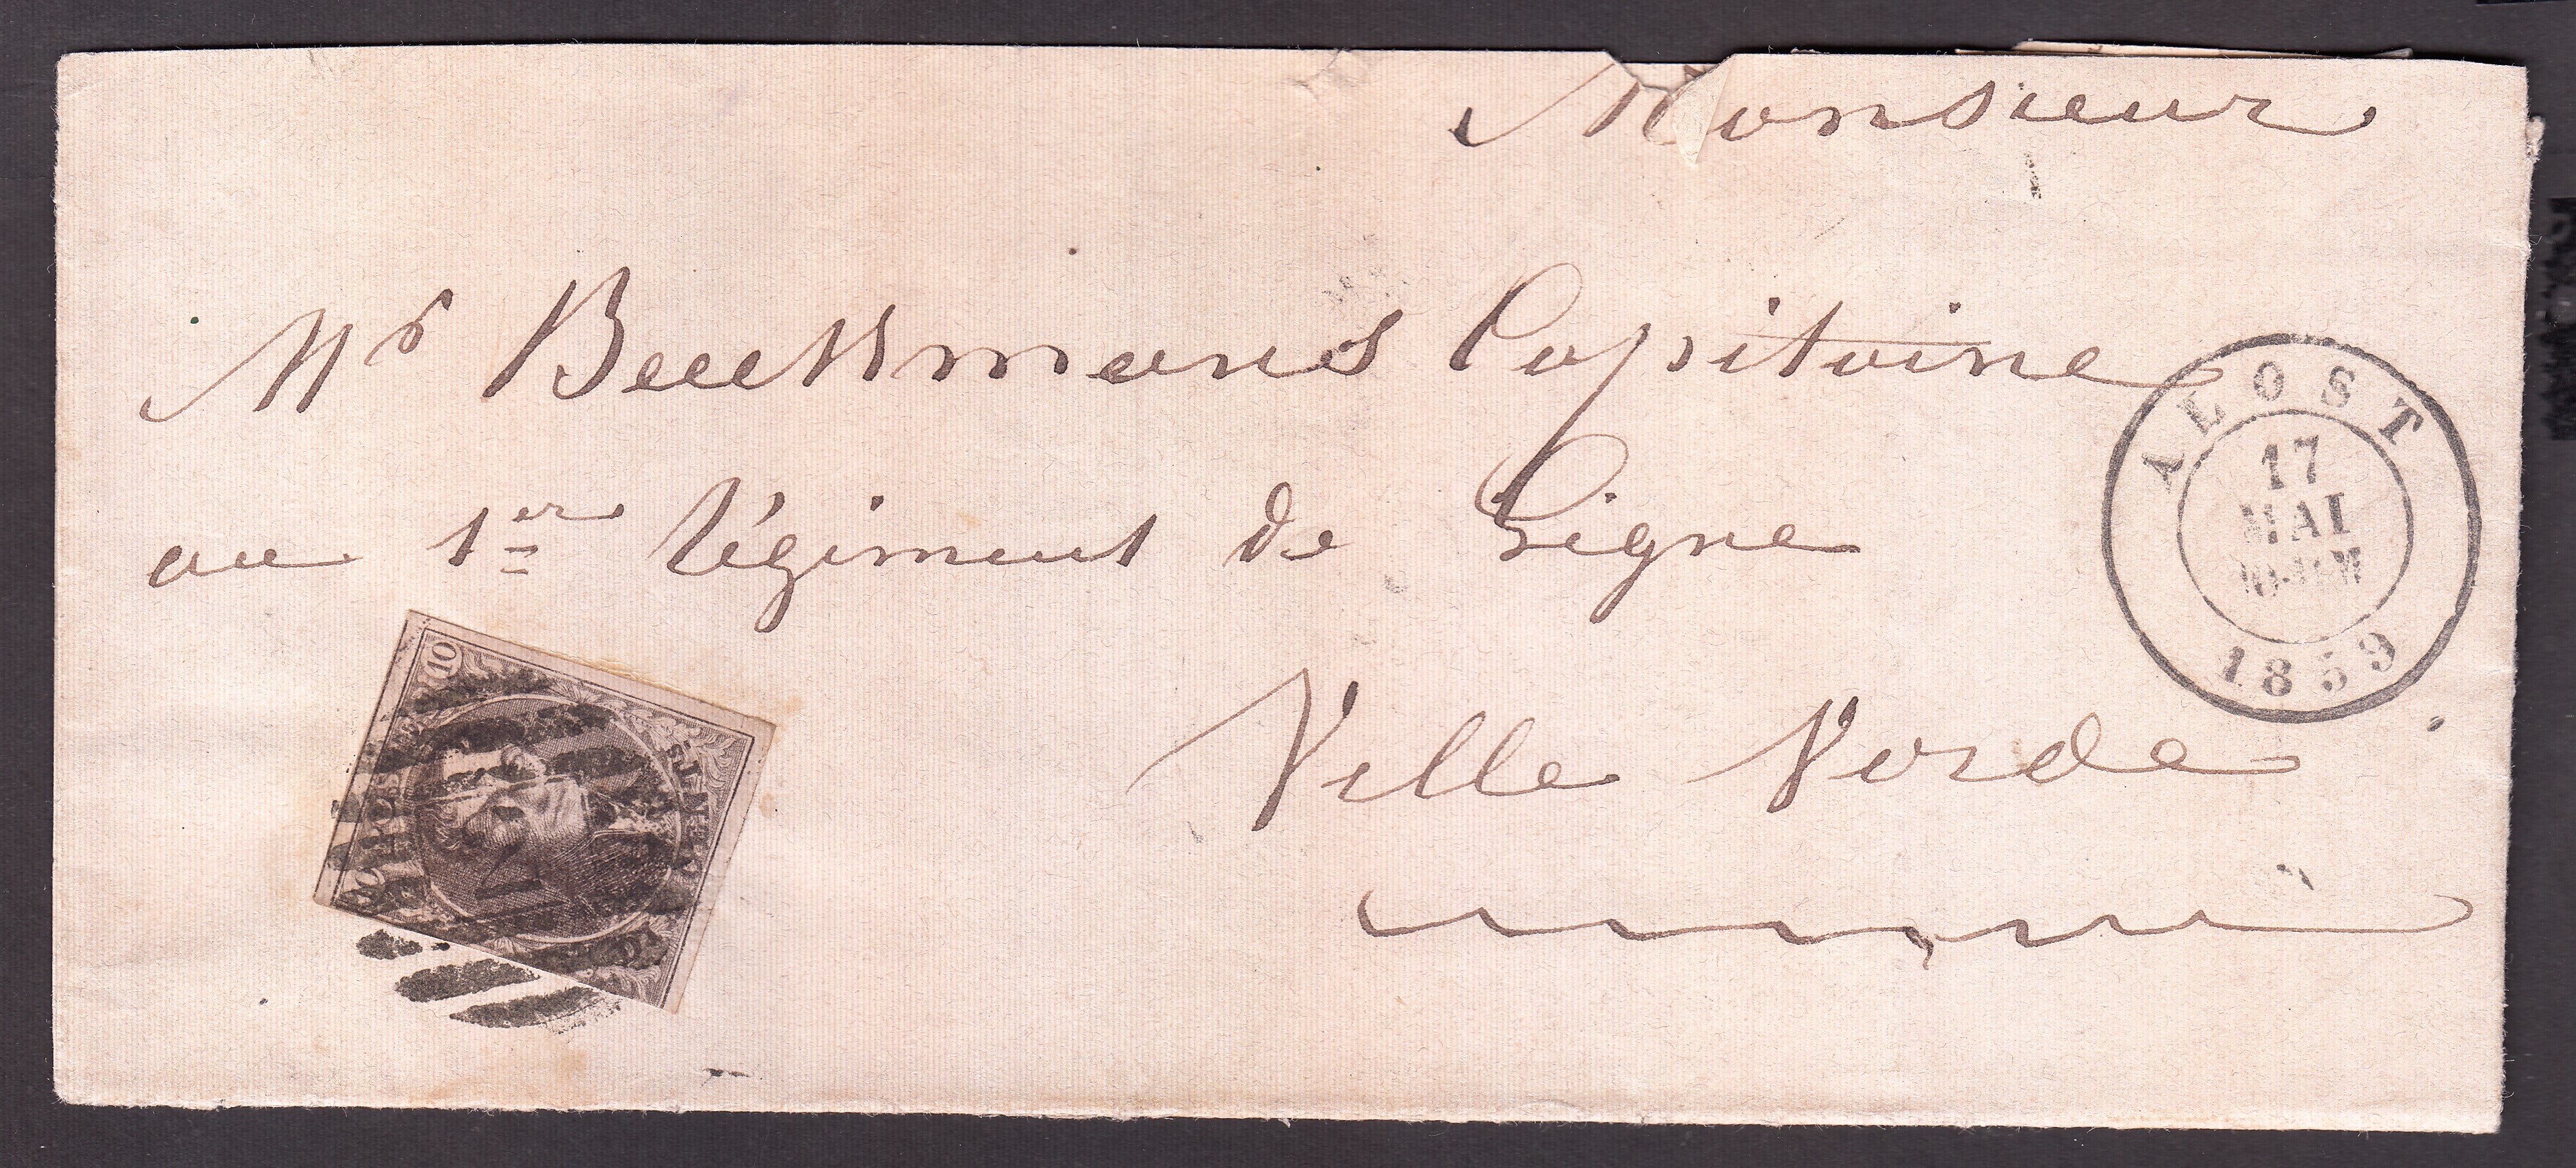 Monsieur
Mr Beeckmans Capitaine
au 1er Régiment de Ligne
Ville Vorde
ALOST
17
MAI
1859
10
10
POSTES
CENTS